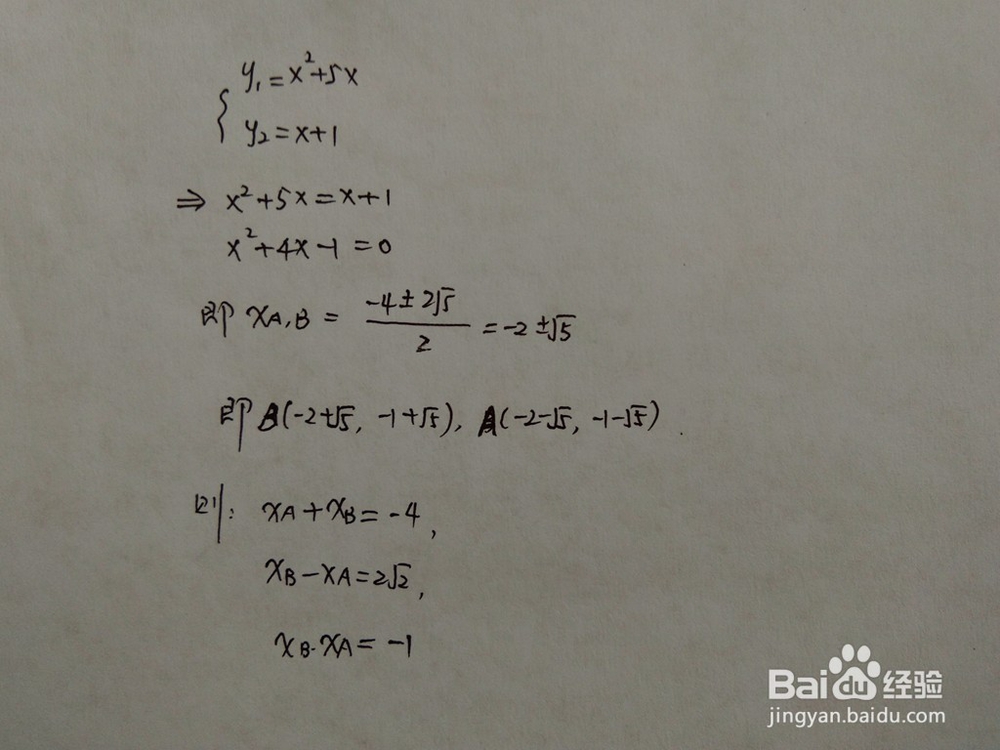 y₁=x²+5x
y₂=x+1
⇒ x²+5x=x+1
x²+4x-1=0
即 xA,B = (-4±2√5)/2 =-2±√5
即 B(-2+√5, -1+√5), A(-2-√5, -1-√5).
则: xA+xB=-4,
xB-xA=2√2,
xB·xA=-1
Baidu 经验
jingyan.baidu.com